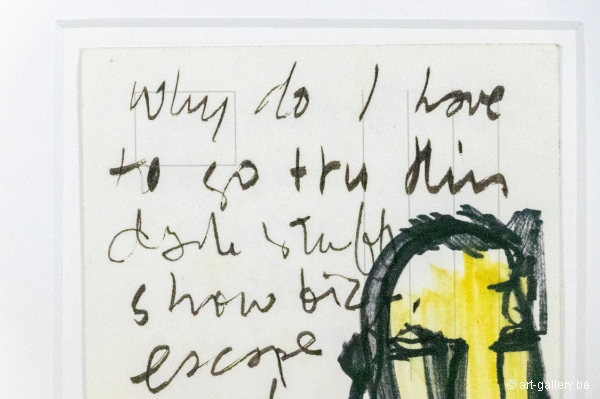 Why do I have
to go tru this
stuff
show biz.
escape
© art-gallery.be